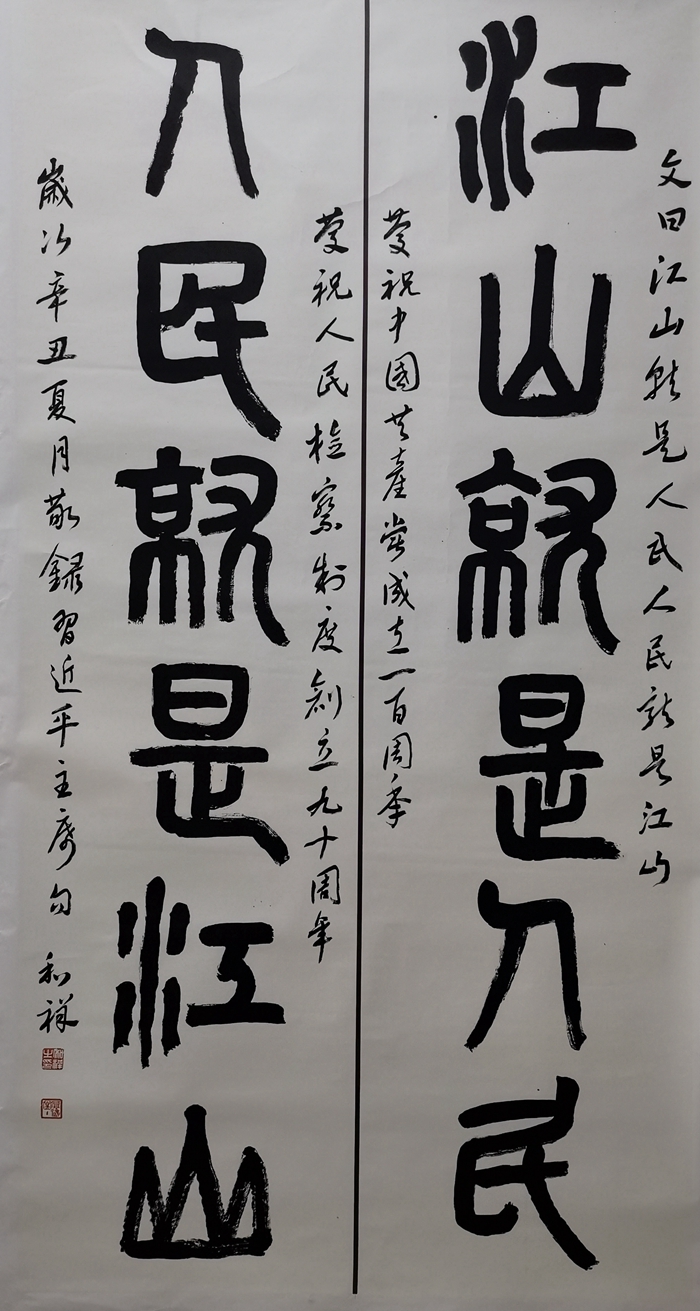 文曰江山就是人民人民就是江山
江山就是人民
慶祝中國共產党成立一百周年
慶祝人民檢察制度創立九十周年
人民就是江山
歲次辛丑夏月敬錄習近平主席句 和祥